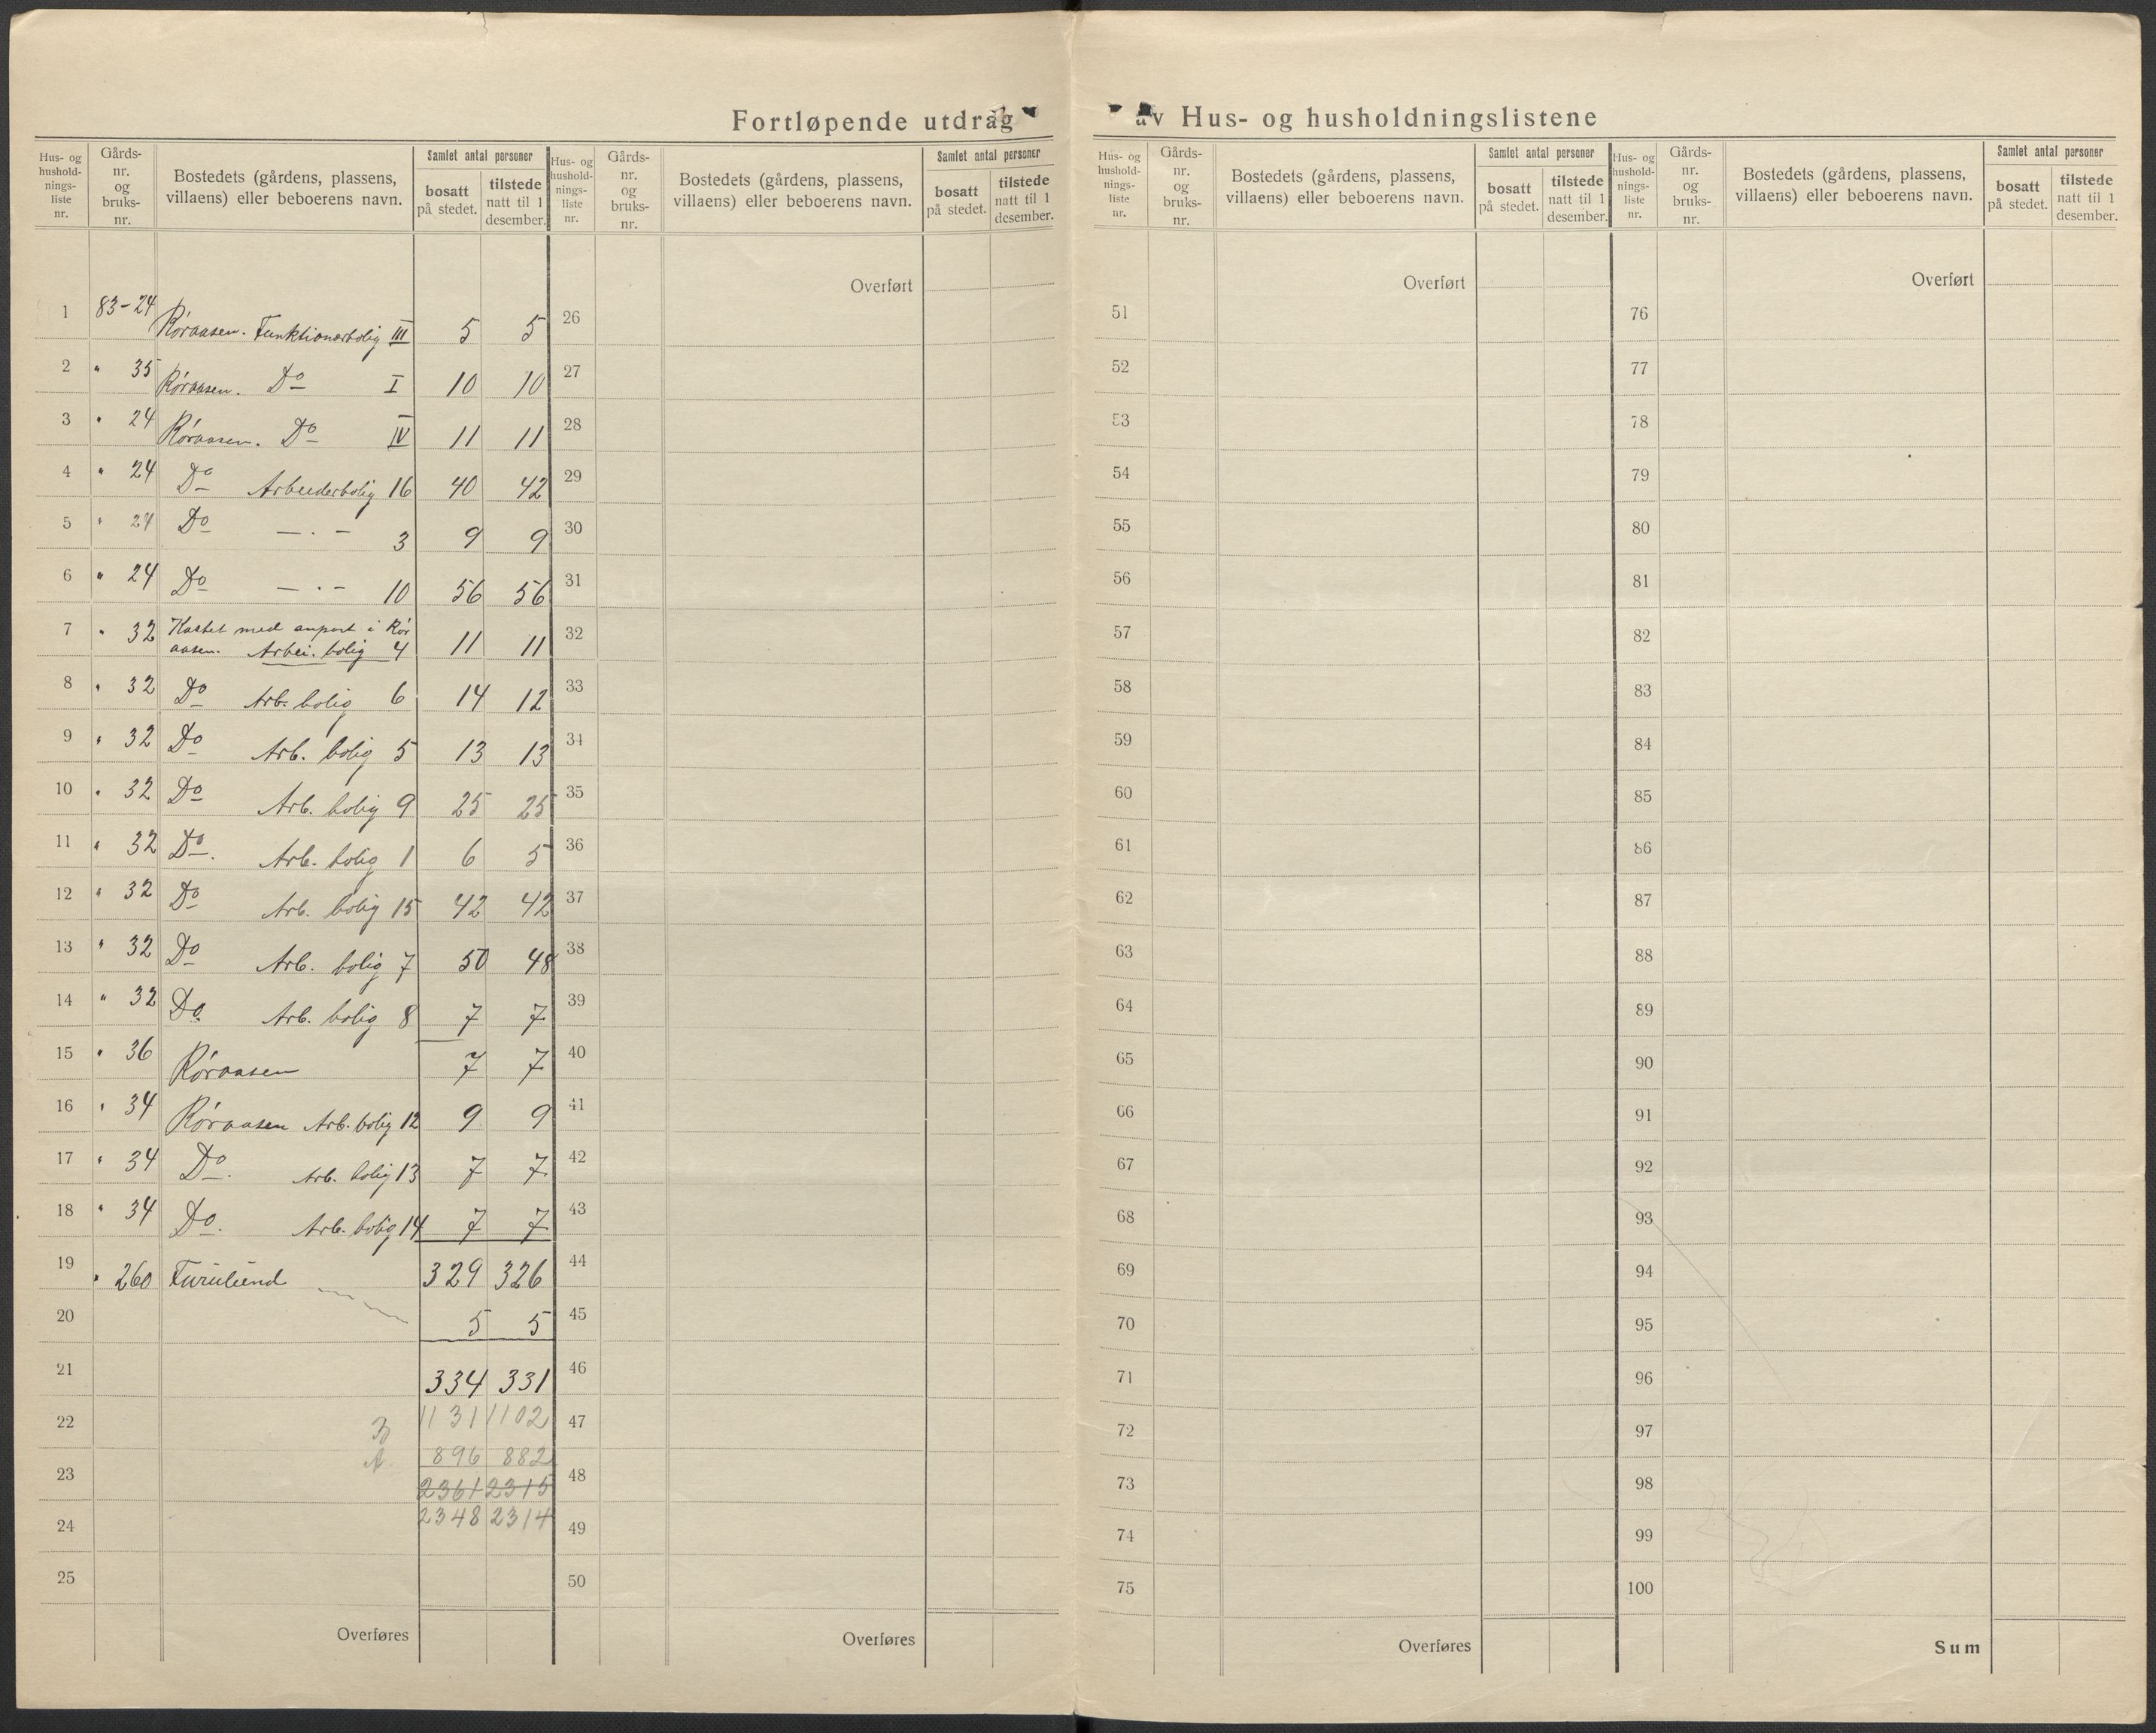 Fortløpende utdrag av Hus- og husholdningslistene
Hus- og hushold-nings-liste nr. Gårds-nr. og bruks-nr. Bostedets (gårdens, plassens, villaens) eller beboerens navn. Samlet antal personer bosatt på stedet. tilstede natt til 1 desember.
Hus- og hushold-nings-liste nr. Gårds-nr. og bruks-nr. Bostedets (gårdens, plassens, villaens) eller beboerens navn. Samlet antal personer bosatt på stedet. tilstede natt til 1 desember.
Hus- og hushold-nings-liste nr. Gårds-nr. og bruks-nr. Bostedets (gårdens, plassens, villaens) eller beboerens navn. Samlet antal personer bosatt på stedet. tilstede natt til 1 desember.
Hus- og hushold-nings-liste nr. Gårds-nr. og bruks-nr. Bostedets (gårdens, plassens, villaens) eller beboerens navn. Samlet antal personer bosatt på stedet. tilstede natt til 1 desember.
Overført Overført Overført
1 83-24 Røraasen. Funktionærbolig III 5 5 26 51 76
2 " 35 Røraasen. Do I 10 10 27 52 77
3 " 24 Røraasen. Do IV 11 11 28 53 78
4 " 24 Do Arbeiderbolig 16 40 42 29 54 79
5 " 24 Do — . — 3 9 9 30 55 80
6 " 24 Do — . — 10 56 56 31 56 81
7 " 32 Kastet med anpart i Rør
aasen. Arbei. bolig 4 11 11 32 57 82
8 " 32 Do Arb. bolig 6 14 12 33 58 83
9 " 32 Do Arb. bolig 5 13 13 34 59 84
10 " 32 Do Arb. bolig 9 25 25 35 60 85
11 " 32 Do. Arb. bolig 1 6 5 36 61 86
12 " 32 Do Arb. bolig 15 42 42 37 62 87
13 " 32 Do Arb. bolig 7 50 48 38 63 88
14 " 32 Do Arb. bolig 8 7 7 39 64 89
15 " 36 Røraasen 7 7 40 65 90
16 " 34 Røraasen Arb. bolig 12 9 9 41 66 91
17 " 34 Do. Arb. bolig 13 7 7 42 67 92
18 " 34 Do. Arb. bolig 14 7 7 43 68 93
19 " 260 Furulund 329 326 44 69 94
20 5 5 45 70 95
21 334 331 46 71 96
22 B 1131 1102 47 72 97
A. 896 882
23 2361 2315 48 73 98
24 2348 2314 49 74 99
25 50 75 100
Overføres Overføres Overføres Sum